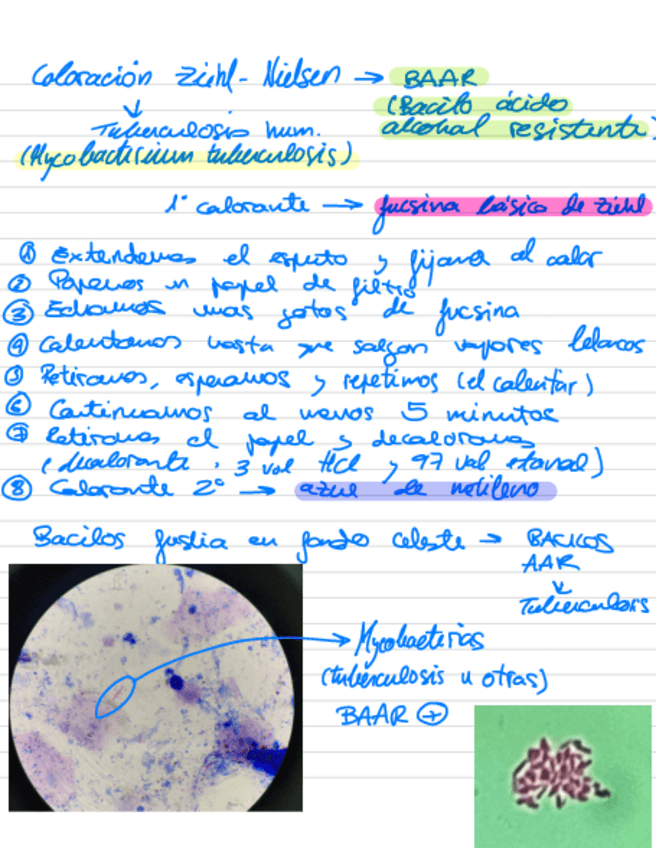 Coloración Ziehl-Nielsen → BAAR
(Bacilo ácido
alcohol resistente)
↓
Tuberculosis hum.
(Mycobacterium tuberculosis)
1º colorante → fucsina básica de Ziehl
① Extendemos el esputo y fijamos al calor
② Ponemos un papel de filtro
③ Echamos unas gotas de fucsina
④ Calentamos hasta que salgan vapores blancos
⑤ Retiramos, esperamos y repetimos (el calentar)
⑥ Continuamos al menos 5 minutos
⑦ Retiramos el papel y decoloramos
(decolorante, 3 vol HCl y 97 vol etanol)
⑧ Colorante 2º → azul de metileno
Bacilos fucsia en fondo celeste → BACILOS
AAR
↓
Tuberculosis
Mycobacterias
(tuberculosis u otras)
BAAR ⊕